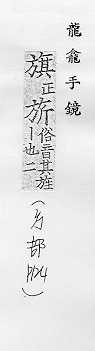 龍龕手鏡
旗正
俗音其旌
丨也二
(方部